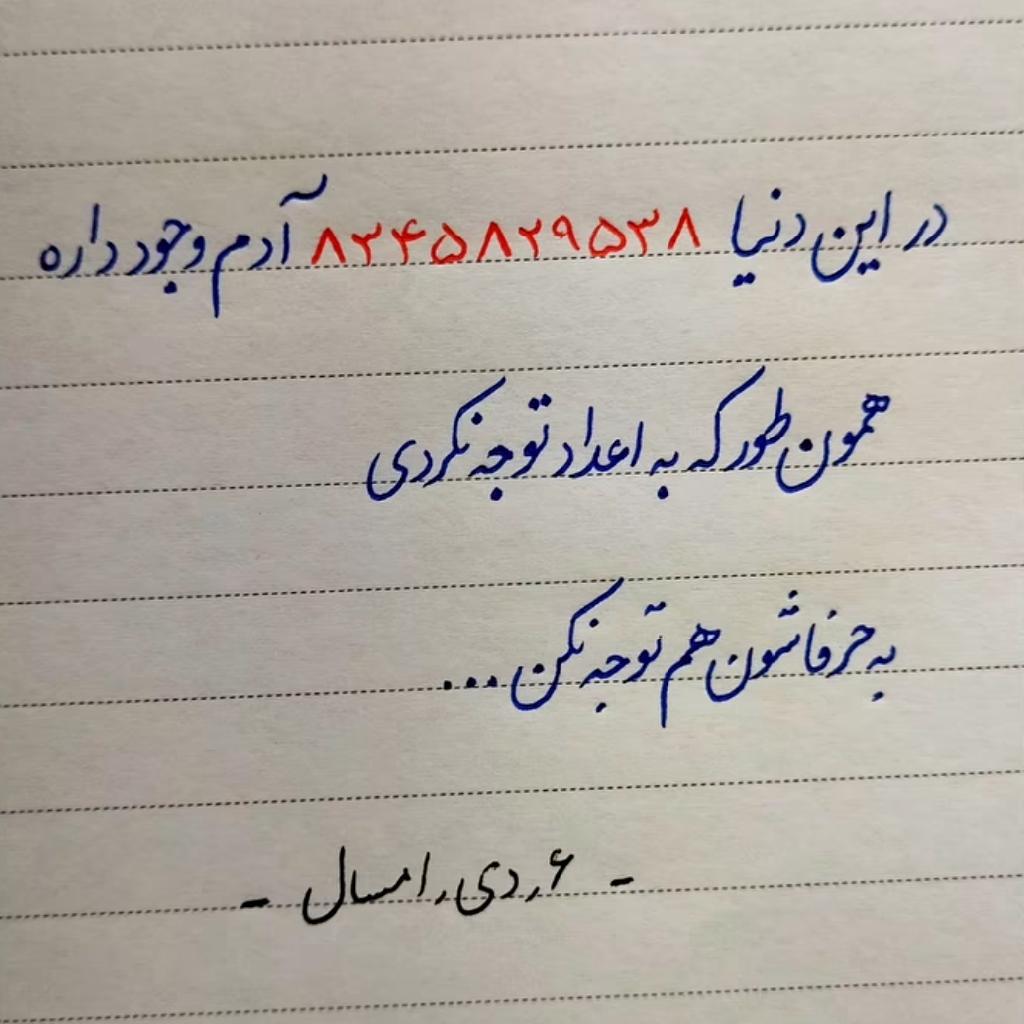 در این دنیا ۸۲۴۵۸۲۹۵۳۸ آدم وجود داره
همون طور که به اعداد توجه نکردی
به حرفاشون هم توجه نکن...
- ۶ر دی ر امسال -